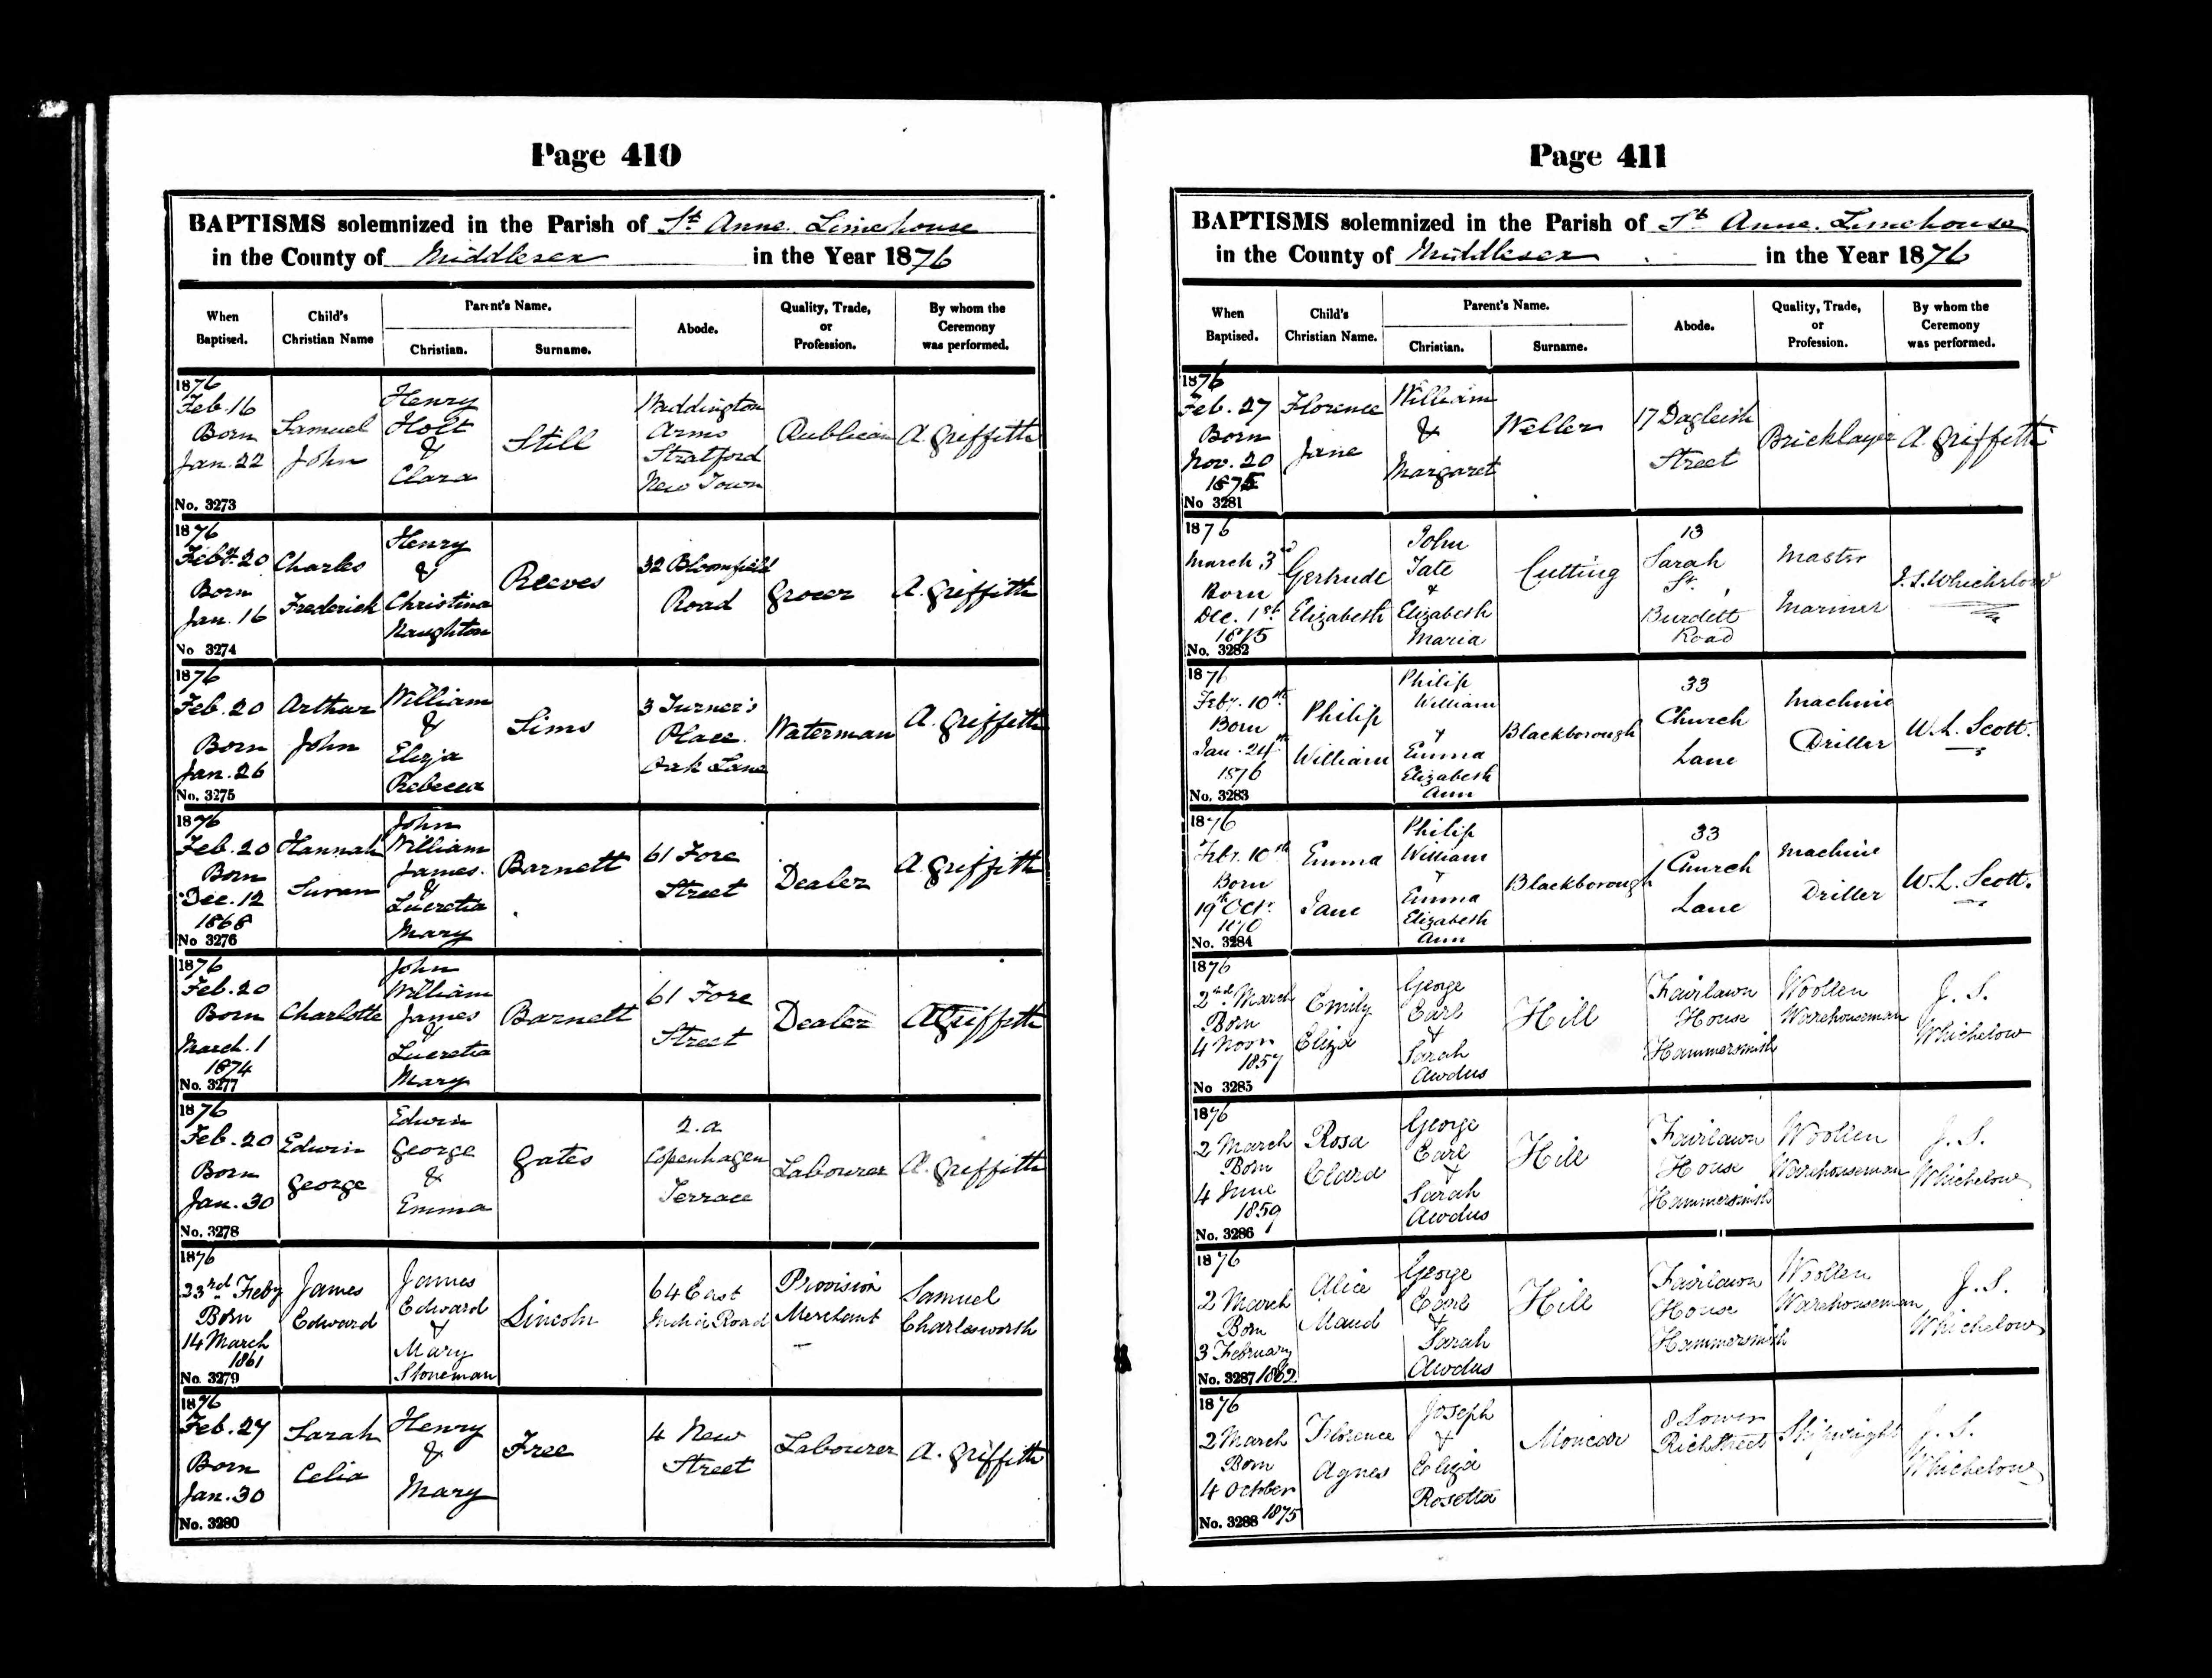 Page 410
BAPTISMS solemnized in the Parish of St. Anne Limehouse
in the County of Middlesex in the Year 1876
When Baptised.
Child's Christian Name
Parent's Name.
Christian.
Surname.
Abode.
Quality, Trade, or Profession.
By whom the Ceremony was performed.
1876
Feb. 16
Born
Jan. 22
No. 3273
Samuel
John
Henry
Holt
&
Clara
Still
Waddington
Arms
Stratford
New Town
Publican
A. Griffith
1876
Feby. 20
Born
Jan. 16
No 3274
Charles
Frederick
Henry
&
Christina
Naughton
Reeves
32 Bloomfield
Road
Grocer
A. Griffith
1876
Feb. 20
Born
Jan. 26
No. 3275
Arthur
John
William
&
Eliza
Rebecca
Sims
3 Turner's
Place.
Oak Lane
Waterman
A. Griffith
1876
Feb. 20
Born
Dec. 12
1868
No 3276
Hannah
Susan
John
William
James.
&
Lucretia
Mary
Barnett
61 Fore
Street
Dealer
A. Griffith
1876
Feb. 20
Born
March. 1
1874
No. 3277
Charlotte
John
William
James
&
Lucretia
Mary
Barnett
61 Fore
Street
Dealer
A Griffith
1876
Feb. 20
Born
Jan. 30
No. 3278
Edwin
George
Edwin
George
&
Emma
Gates
2.a
Copenhagen
Terrace
Labourer
A. Griffith
1876
23rd Feby
Born
14 March
1861
No. 3279
James
Edward
James
Edward
&
Mary
Stoneman
Lincoln
64 East
India Road
Provision
Merchant
Samuel
Charlesworth
1876
Feb. 27
Born
Jan. 30
No. 3280
Sarah
Celia
Henry
&
Mary
Free
4 New
Street
Labourer
A. Griffith
Page 411
BAPTISMS solemnized in the Parish of St. Anne. Limehouse
in the County of Middlesex in the Year 1876
When Baptised.
Child's Christian Name.
Parent's Name.
Christian.
Surname.
Abode.
Quality, Trade, or Profession.
By whom the Ceremony was performed.
1876
Feb. 27
Born
Nov. 20
1875
No 3281
Florence
Jane
William
&
Margaret
Weller
17 Dagleish
Street
Bricklayer
A. Griffith
1876
March 3rd
Born
Dec. 1st
1875
No. 3282
Gertrude
Elizabeth
John
Tate
&
Elizabeth
Maria
Cutting
13
Sarah
St.
Burdett
Road
Master
Mariner
J.S. Whichelow
1876
Feby. 10th
Born
Jan. 24th
1876
No. 3283
Philip
William
Philip
William
&
Emma
Elizabeth
Ann
Blackborough
33
Church
Lane
Machine
Driller
W.L. Scott.
1876
Feby. 10th
Born
19th Octr.
1870
No. 3284
Emma
Jane
Philip
William
&
Emma
Elizabeth
Ann
Blackborough
33
Church
Lane
Machine
Driller
W.L. Scott.
1876
2nd March
Born
4 Novr
1857
No 3285
Emily
Eliza
George
Earl
&
Sarah
Awdus
Hill
Fairlawn
House
Hammersmith
Woollen
Warehouseman
J. S.
Whichelow
1876
2 March
Born
4 June
1859
No. 3286
Rosa
Clara
George
Earl
&
Sarah
Awdus
Hill
Fairlawn
House
Hammersmith
Woollen
Warehouseman
J. S.
Whichelow
1876
2 March
Born
3 February
No. 3287 1862
Alice
Maud
George
Earl
&
Sarah
Awdus
Hill
Fairlawn
House
Hammersmith
Woollen
Warehouseman
J. S.
Whichelow
1876
2 March
Born
4 October
No. 3288 1875
Florence
Agnes
Joseph
&
Eliza
Rosetta
Moncar
8 Lower
Rich Street
Shipwright
J. S.
Whichelow